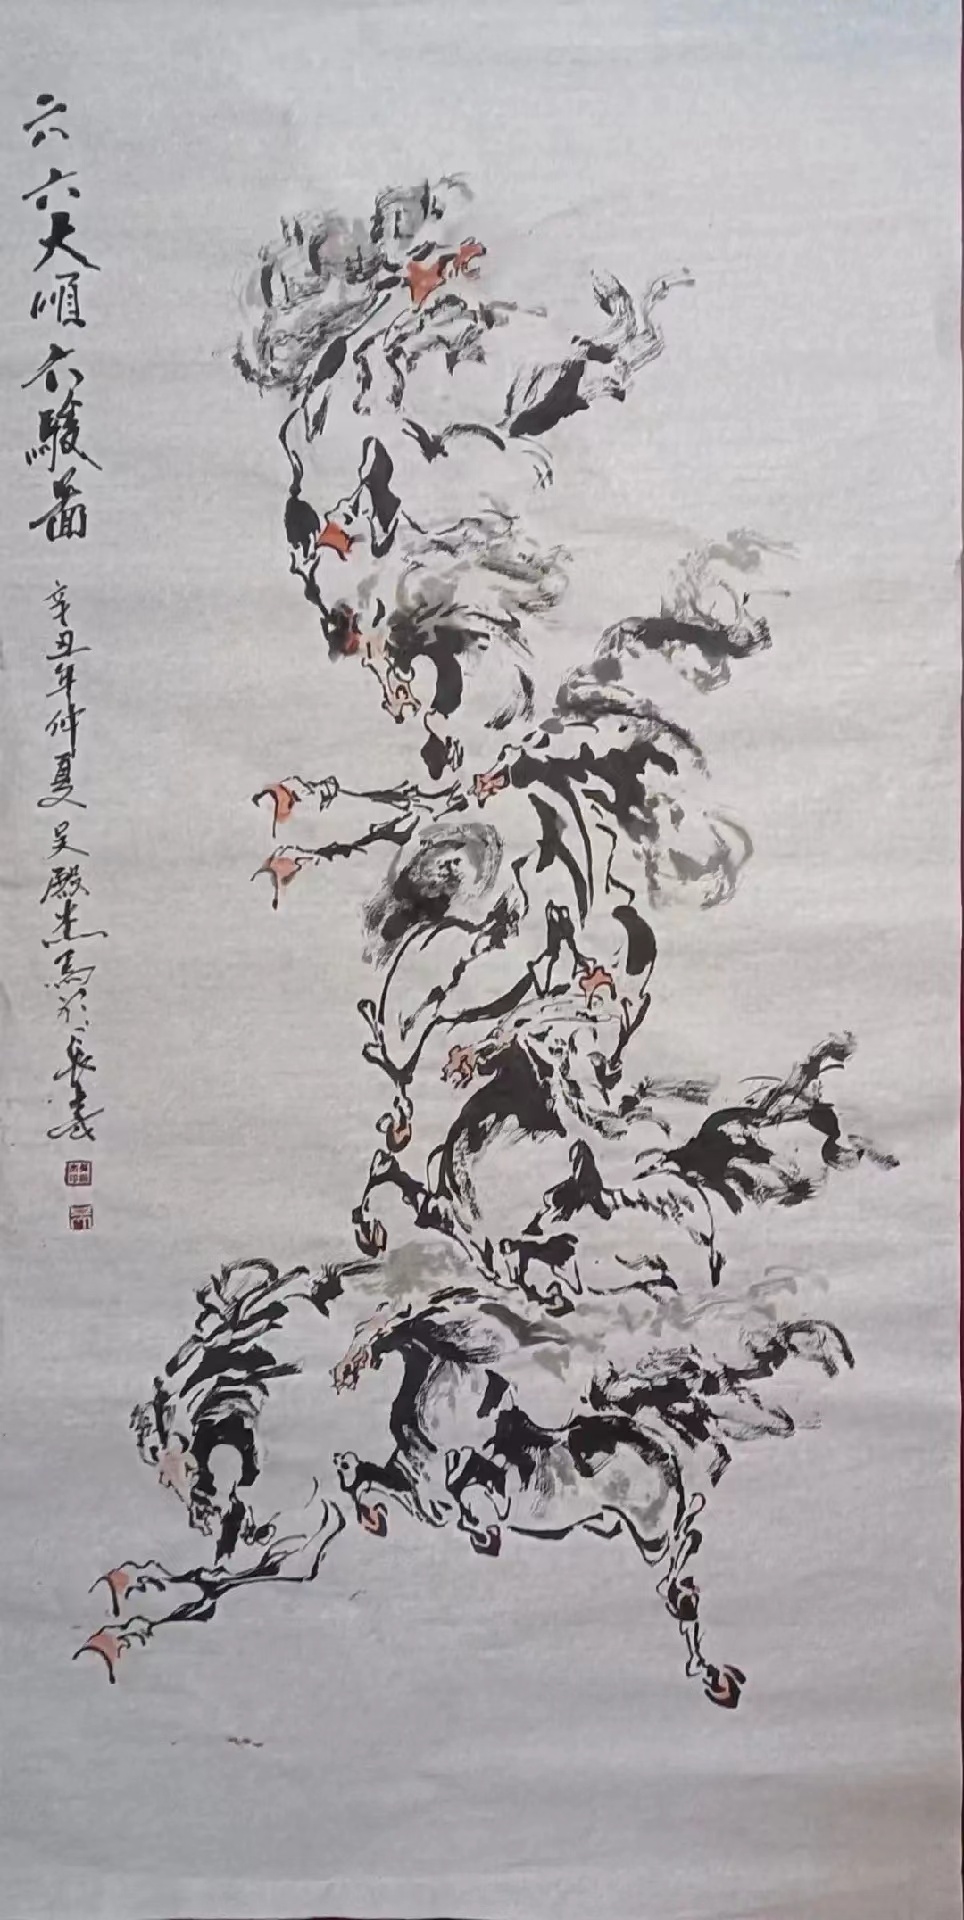 六六大順六駿圖 辛丑年仲夏 吴殿杰写於長